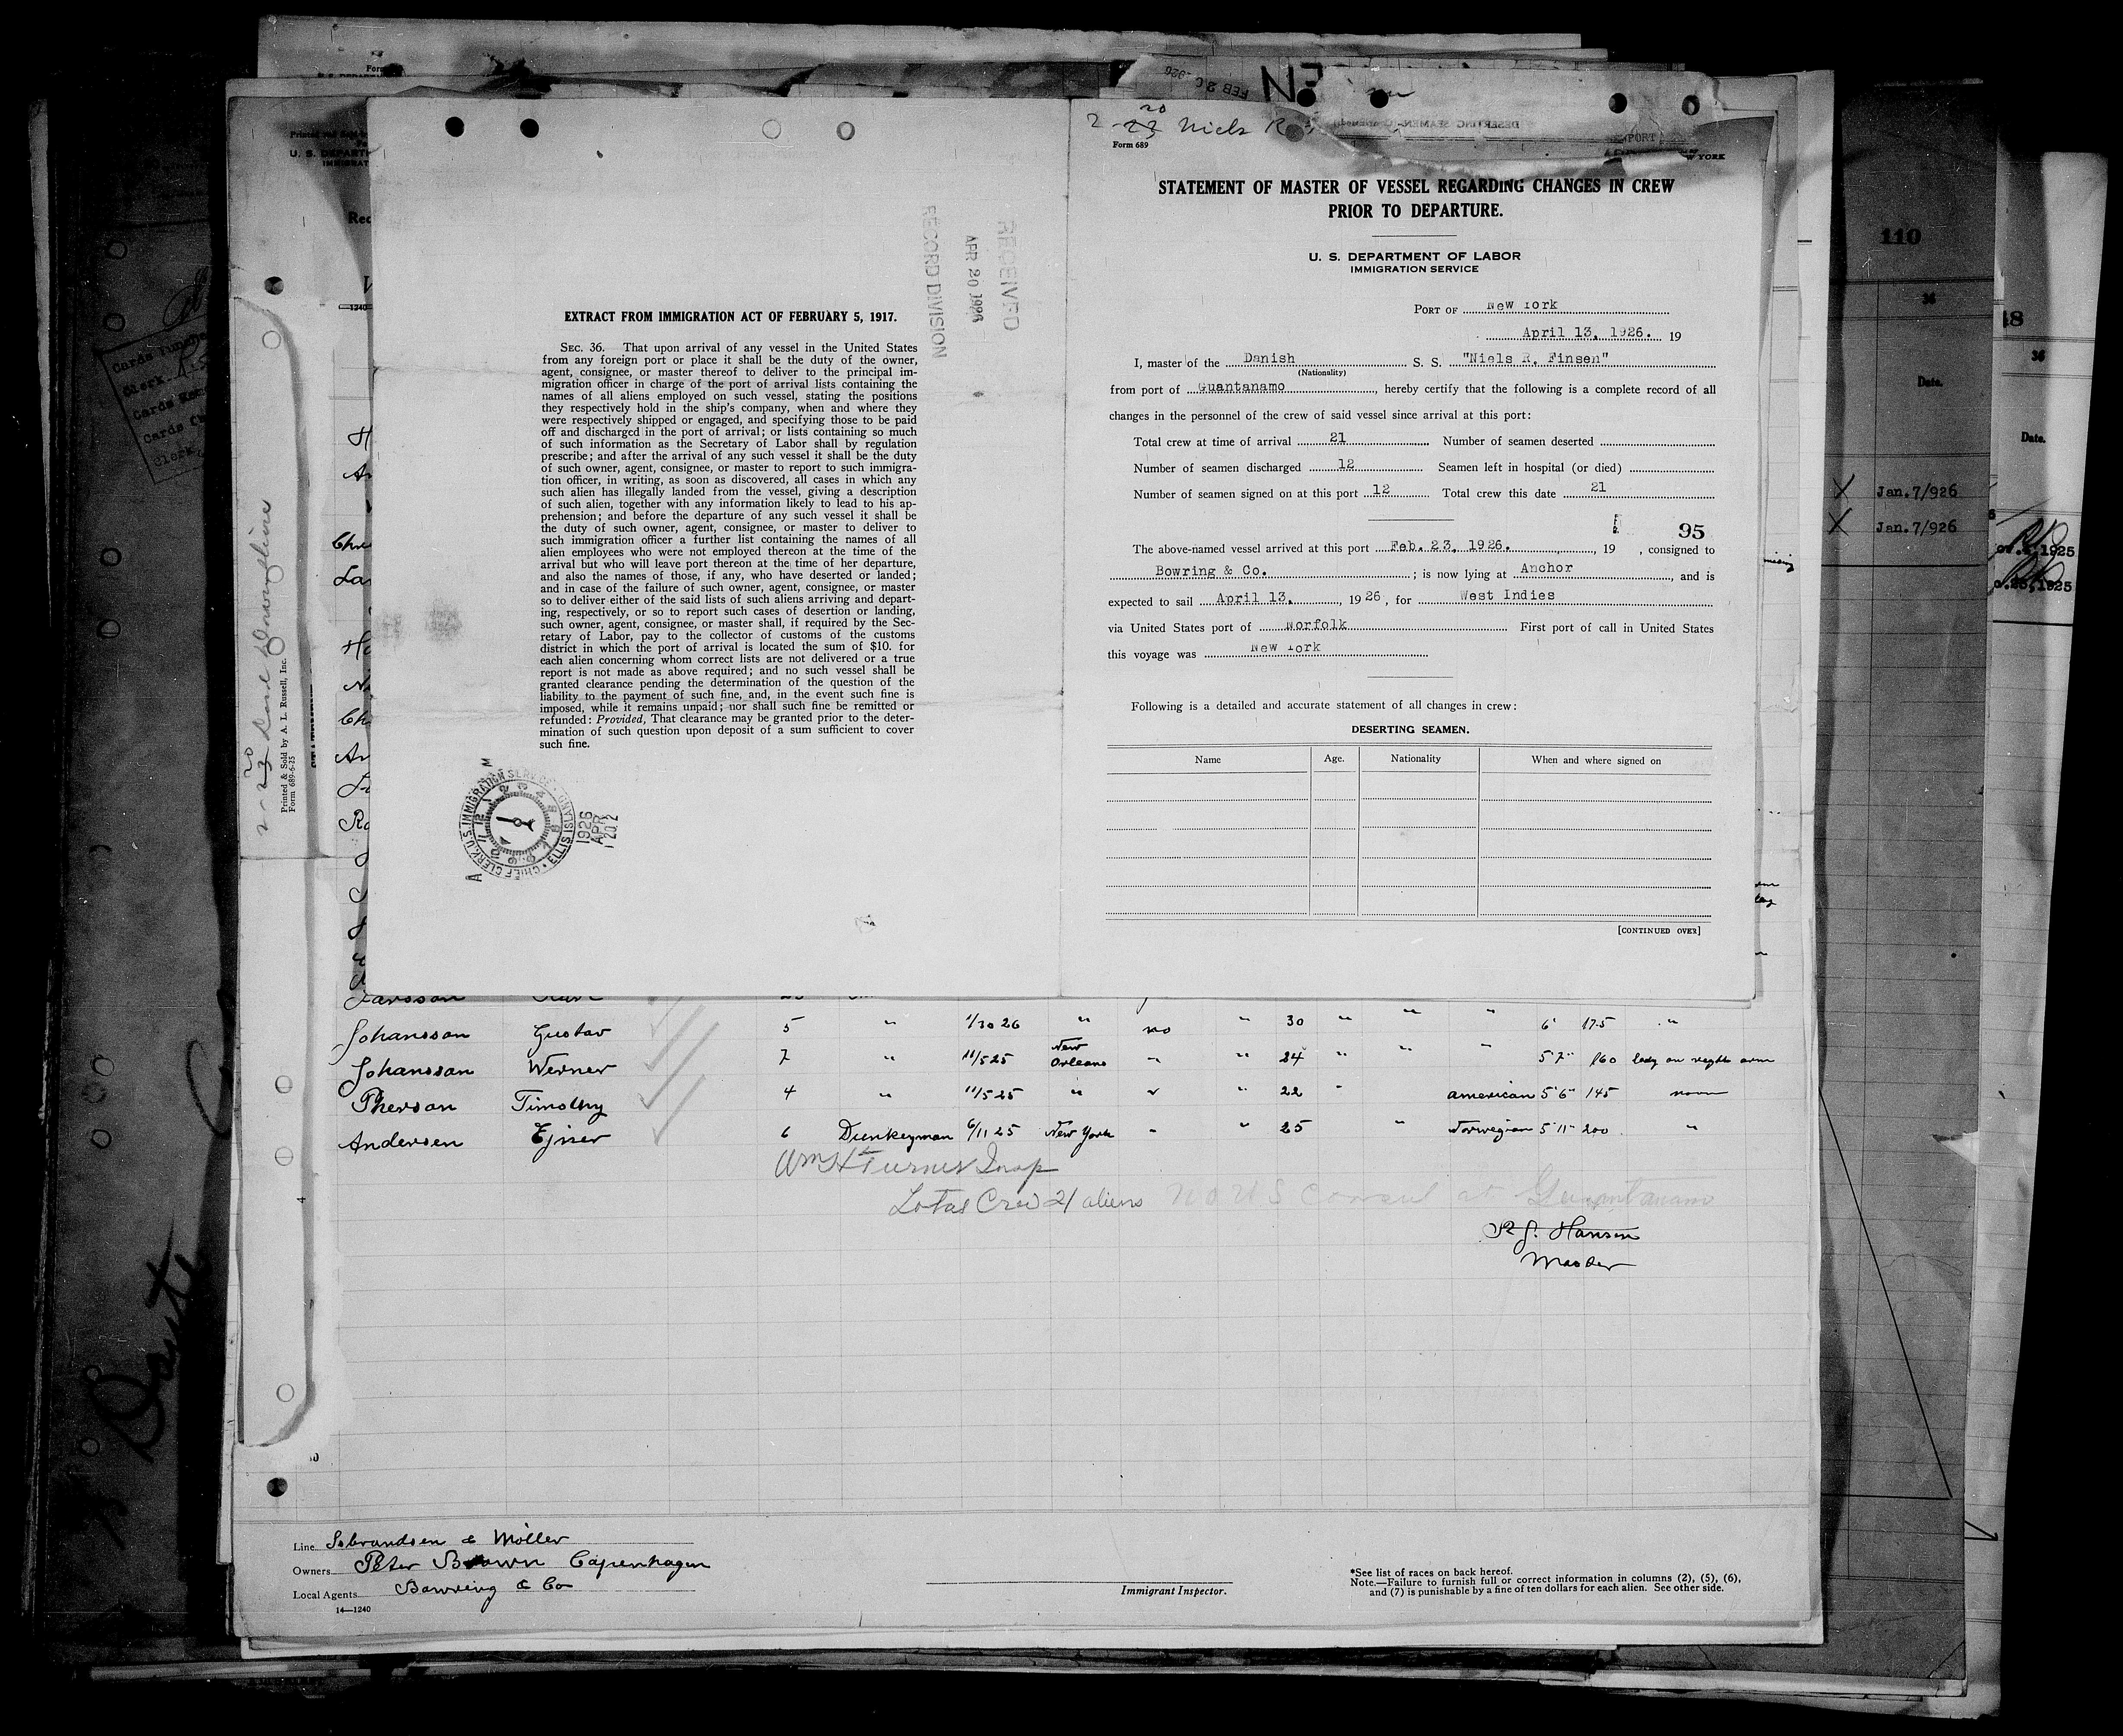 EXTRACT FROM IMMIGRATION ACT OF FEBRUARY 5, 1917.
SEC. 36. That upon arrival of any vessel in the United States
from any foreign port or place it shall be the duty of the owner,
agent, consignee, or master thereof to deliver to the principal im-
migration officer in charge of the port of arrival lists containing the
names of all aliens employed on such vessel, stating the positions
they respectively hold in the ship's company, when and where they
were respectively shipped or engaged, and specifying those to be paid
off and discharged in the port of arrival; or lists containing so much
of such information as the Secretary of Labor shall by regulation
prescribe; and after the arrival of any such vessel it shall be the duty
of such owner, agent, consignee, or master to report to such immigra-
tion officer, in writing, as soon as discovered, all cases in which any
such alien has illegally landed from the vessel, giving a description
of such alien, together with any information likely to lead to his ap-
prehension; and before the departure of any such vessel it shall be
the duty of such owner, agent, consignee, or master to deliver to
such immigration officer a further list containing the names of all
alien employees who were not employed thereon at the time of the
arrival but who will leave port thereon at the time of her departure,
and also the names of those, if any, who have deserted or landed;
and in case of the failure of such owner, agent, consignee, or master
so to deliver either of the said lists of such aliens arriving and depart-
ing, respectively, or so to report such cases of desertion or landing,
such owner, agent, consignee, or master shall, if required by the Sec-
retary of Labor, pay to the collector of customs of the customs
district in which the port of arrival is located the sum of $10. for
each alien concerning whom correct lists are not delivered or a true
report is not made as above required; and no such vessel shall be
granted clearance pending the determination of the question of the
liability to the payment of such fine, and, in the event such fine is
imposed, while it remains unpaid; nor shall such fine be remitted or
refunded: Provided, That clearance may be granted prior to the deter-
mination of such question upon deposit of a sum sufficient to cover
such fine.
RECEIVED
APR 20 1926
RECORD DIVISION
CHIEF CLERK, U.S. IMMIGRATION SERVICE, ELLIS ISLAND
1926
APR
20
Printed & Sold by A. L. Russell, Inc.
Form 689-6-25
Niels R
Form 689
STATEMENT OF MASTER OF VESSEL REGARDING CHANGES IN CREW
PRIOR TO DEPARTURE.
U. S. DEPARTMENT OF LABOR
IMMIGRATION SERVICE
PORT OF New York
April 13, 1926. 19
I, master of the Danish S. S. "Niels R. Finsen"
(Nationality)
from port of Guantanamo, hereby certify that the following is a complete record of all
changes in the personnel of the crew of said vessel since arrival at this port:
Total crew at time of arrival 21 Number of seamen deserted
Number of seamen discharged 12 Seamen left in hospital (or died)
Number of seamen signed on at this port 12 Total crew this date 21
95
The above-named vessel arrived at this port Feb. 23, 1926. , 19 , consigned to
Bowring & Co. ; is now lying at Anchor , and is
expected to sail April 13, , 1926, for West Indies
via United States port of Norfolk First port of call in United States
this voyage was New York
Following is a detailed and accurate statement of all changes in crew:
DESERTING SEAMEN.
Name Age. Nationality When and where signed on
[CONTINUED OVER]
110
36
Date.
Jan.7/926
Jan.7/926
36
Date.
Johansson Gustav 5 " 1/30 26 " no " 30 " " " 6' 175 "
Johansson Werner 7 " 11/5 25 New Orleans " " 24 " " " 5'7" 160 lady on right arm
Pherson Timothy 4 " 11/5 25 " " " 22 " american 5'6" 145
Andersen Ejner 6 Dunkeyman 6/11 25 New York " " 25 " Norwegian 5'11" 200 "
Wm H Turner Insp
Total Crew 21 aliens No U S Consul at Guantanamo
Hansen
Master
Line Isbrandsen & Möller
Owners Peter Brown Copenhagen
Local Agents Bowring & Co
14—1240
Immigrant Inspector.
*See list of races on back hereof.
Note.—Failure to furnish full or correct information in columns (2), (5), (6),
and (7) is punishable by a fine of ten dollars for each alien. See other side.